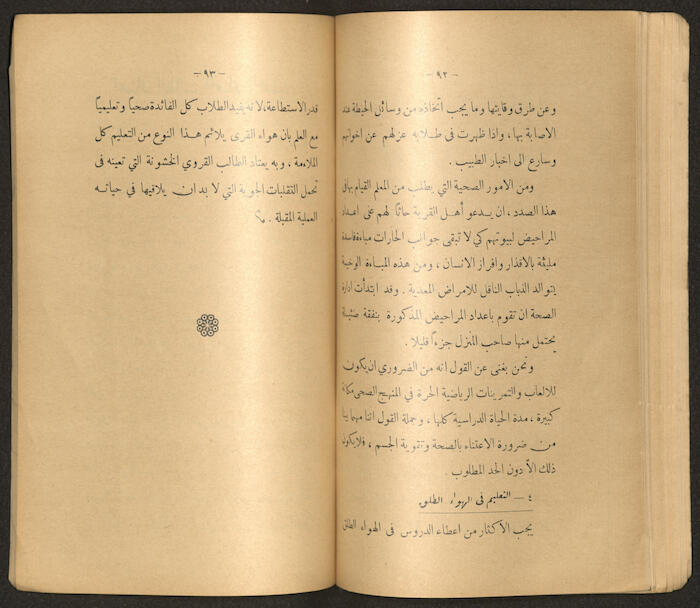 - ٩٢ -
وعن طرق وقايتها وما يجب اتخاذه من وسائل الحيطة عند
الاصابة بها، واذا ظهرت في طلابه عزلهم عن اخوانهم
وسارع الى اخبار الطبيب .
ومن الامور الصحية التي يطلب من المعلم القيام بها في
هذا الصدد، ان يدعو أهل القرية حاثاً لهم على اعداد
المراحيض لبيوتهم كي لا تبقى جوانب الحارات مباءة فاسدة
مليئة بالاقذار وافراز الانسان ، ومن هذه المباءة الوخيمة
يتوالد الذباب الناقل للامراض المعدية . وقد ابتدأت ادارة
الصحة ان تقوم باعداد المراحيض المذكورة بنفقة ضئيلة
يحتمل منها صاحب المنزل جزءاً قليلا .
ونحن بغنى عن القول انه من الضروري ان يكون
للالعاب والتمرينات الرياضية الحرة في المنهج الصحى مكانة
كبيرة ، مدة الحياة الدراسية كلها ، وجملة القول اننا مهما بينا
من ضرورة الاعتناء بالصحة وتقوية الجسم ، فلا يكون
ذلك الاّ دون الحد المطلوب .
٤ - التعليم في الهواء الطلق
يجب الاكثار من اعطاء الدروس في الهواء الطلق
- ٩٣ -
قدر الاستطاعة، لانه يفيد الطلاب كل الفائدة صحياً وتعليمياً
مع العلم بان هواء القرى يلائم هذا النوع من التعليم كل
الملاءمة ، وبه يعتاد الطالب القروي الخشونة التي تعينه في
تحمل التقلبات الجوية التي لا بد ان يلاقيها في حياته
العملية المقبلة .